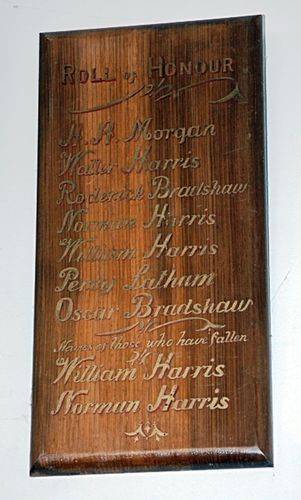 ROLL of HONOUR
H. A. Morgan
Walter Harris
Roderick Bradshaw
Norman Harris
William Harris
Percy Latham
Oscar Bradshaw
Names of those who have fallen
William Harris
Norman Harris